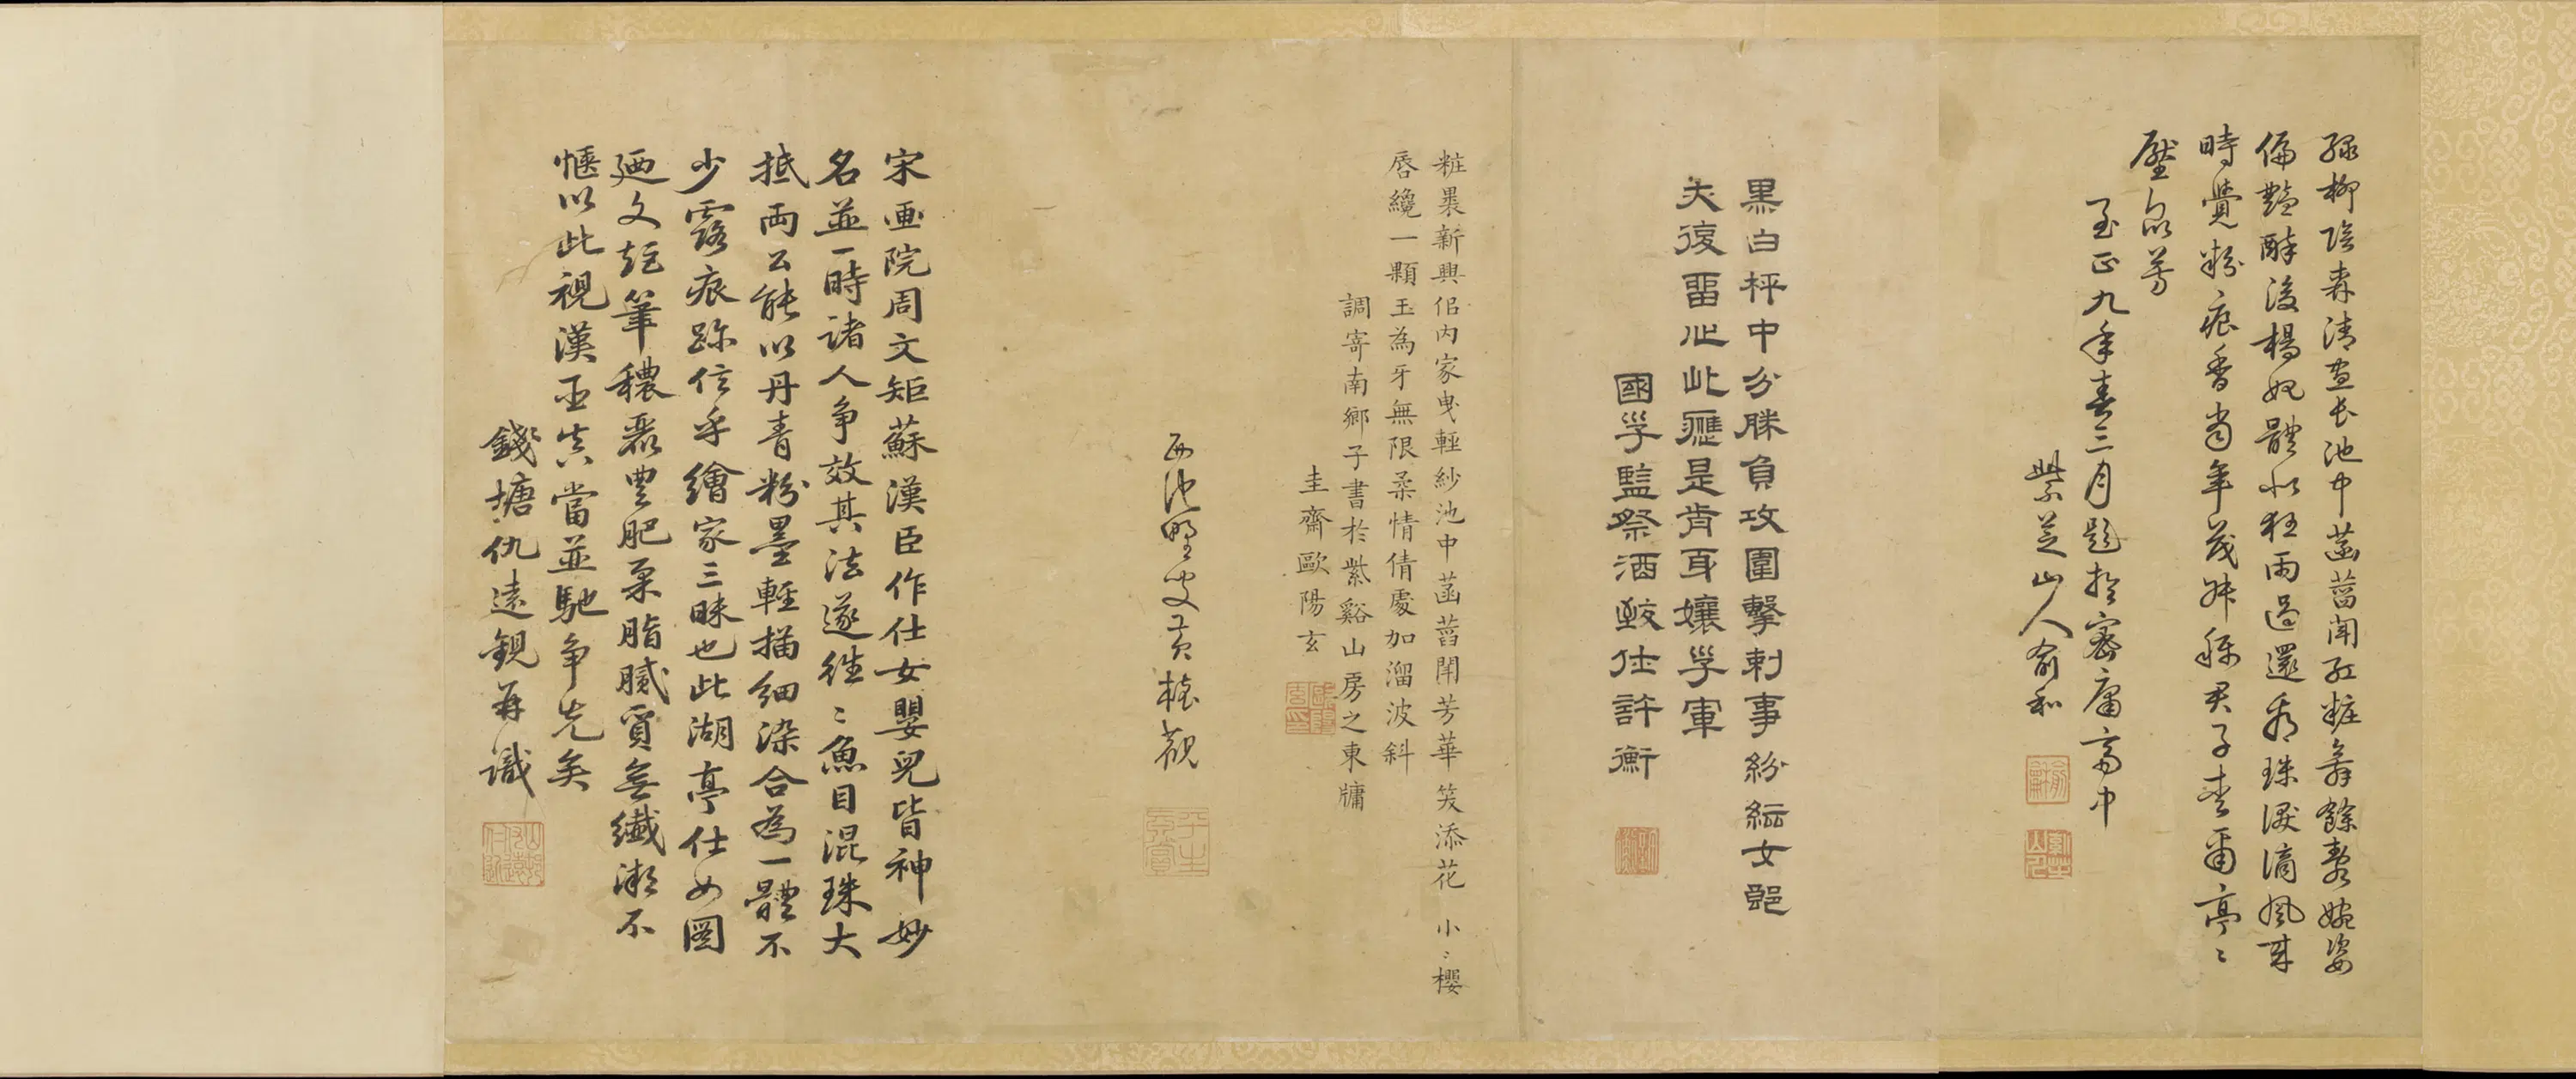 綠柳陰森清晝長池中菡萏鬪紅粧舞餘裊裊婉姿
偏豔醉後楊妃體似狂雨過還看珠淚滴風來
時覺粉痕香當年茂叔稱君子李甫亭〻
壓眾芳
至正九年春三月題於密庸齋中
紫芝山人俞和
黑白枰中分勝負攻圍擊刺事紛紜女郎
夫復留心此應是肯耳孃子軍
國子監祭酒致仕許衡
粧裹新興佀內家曳輕紗池中菡萏鬧芳華笑添花 小〻櫻
唇纔一顆玉為牙無限柔情倩處加溜波斜
調寄南鄉子書於紫谿山房之東牖
圭齋歐陽玄
西池野叟黃樁觀
宋画院周文矩蘇漢臣作仕女嬰兒皆神妙
名並一時諸人爭效其法遂徃〻魚目混珠大
抵兩公能以丹青粉墨輕描細染合為一體不
少露痕跡信乎繪家三昧也此湖亭仕女圖
廼文矩筆穠麗豐肥柔脂膩質無纖漸不
愜以此視漢臣真當並馳爭先矣
錢塘仇遠觀并識